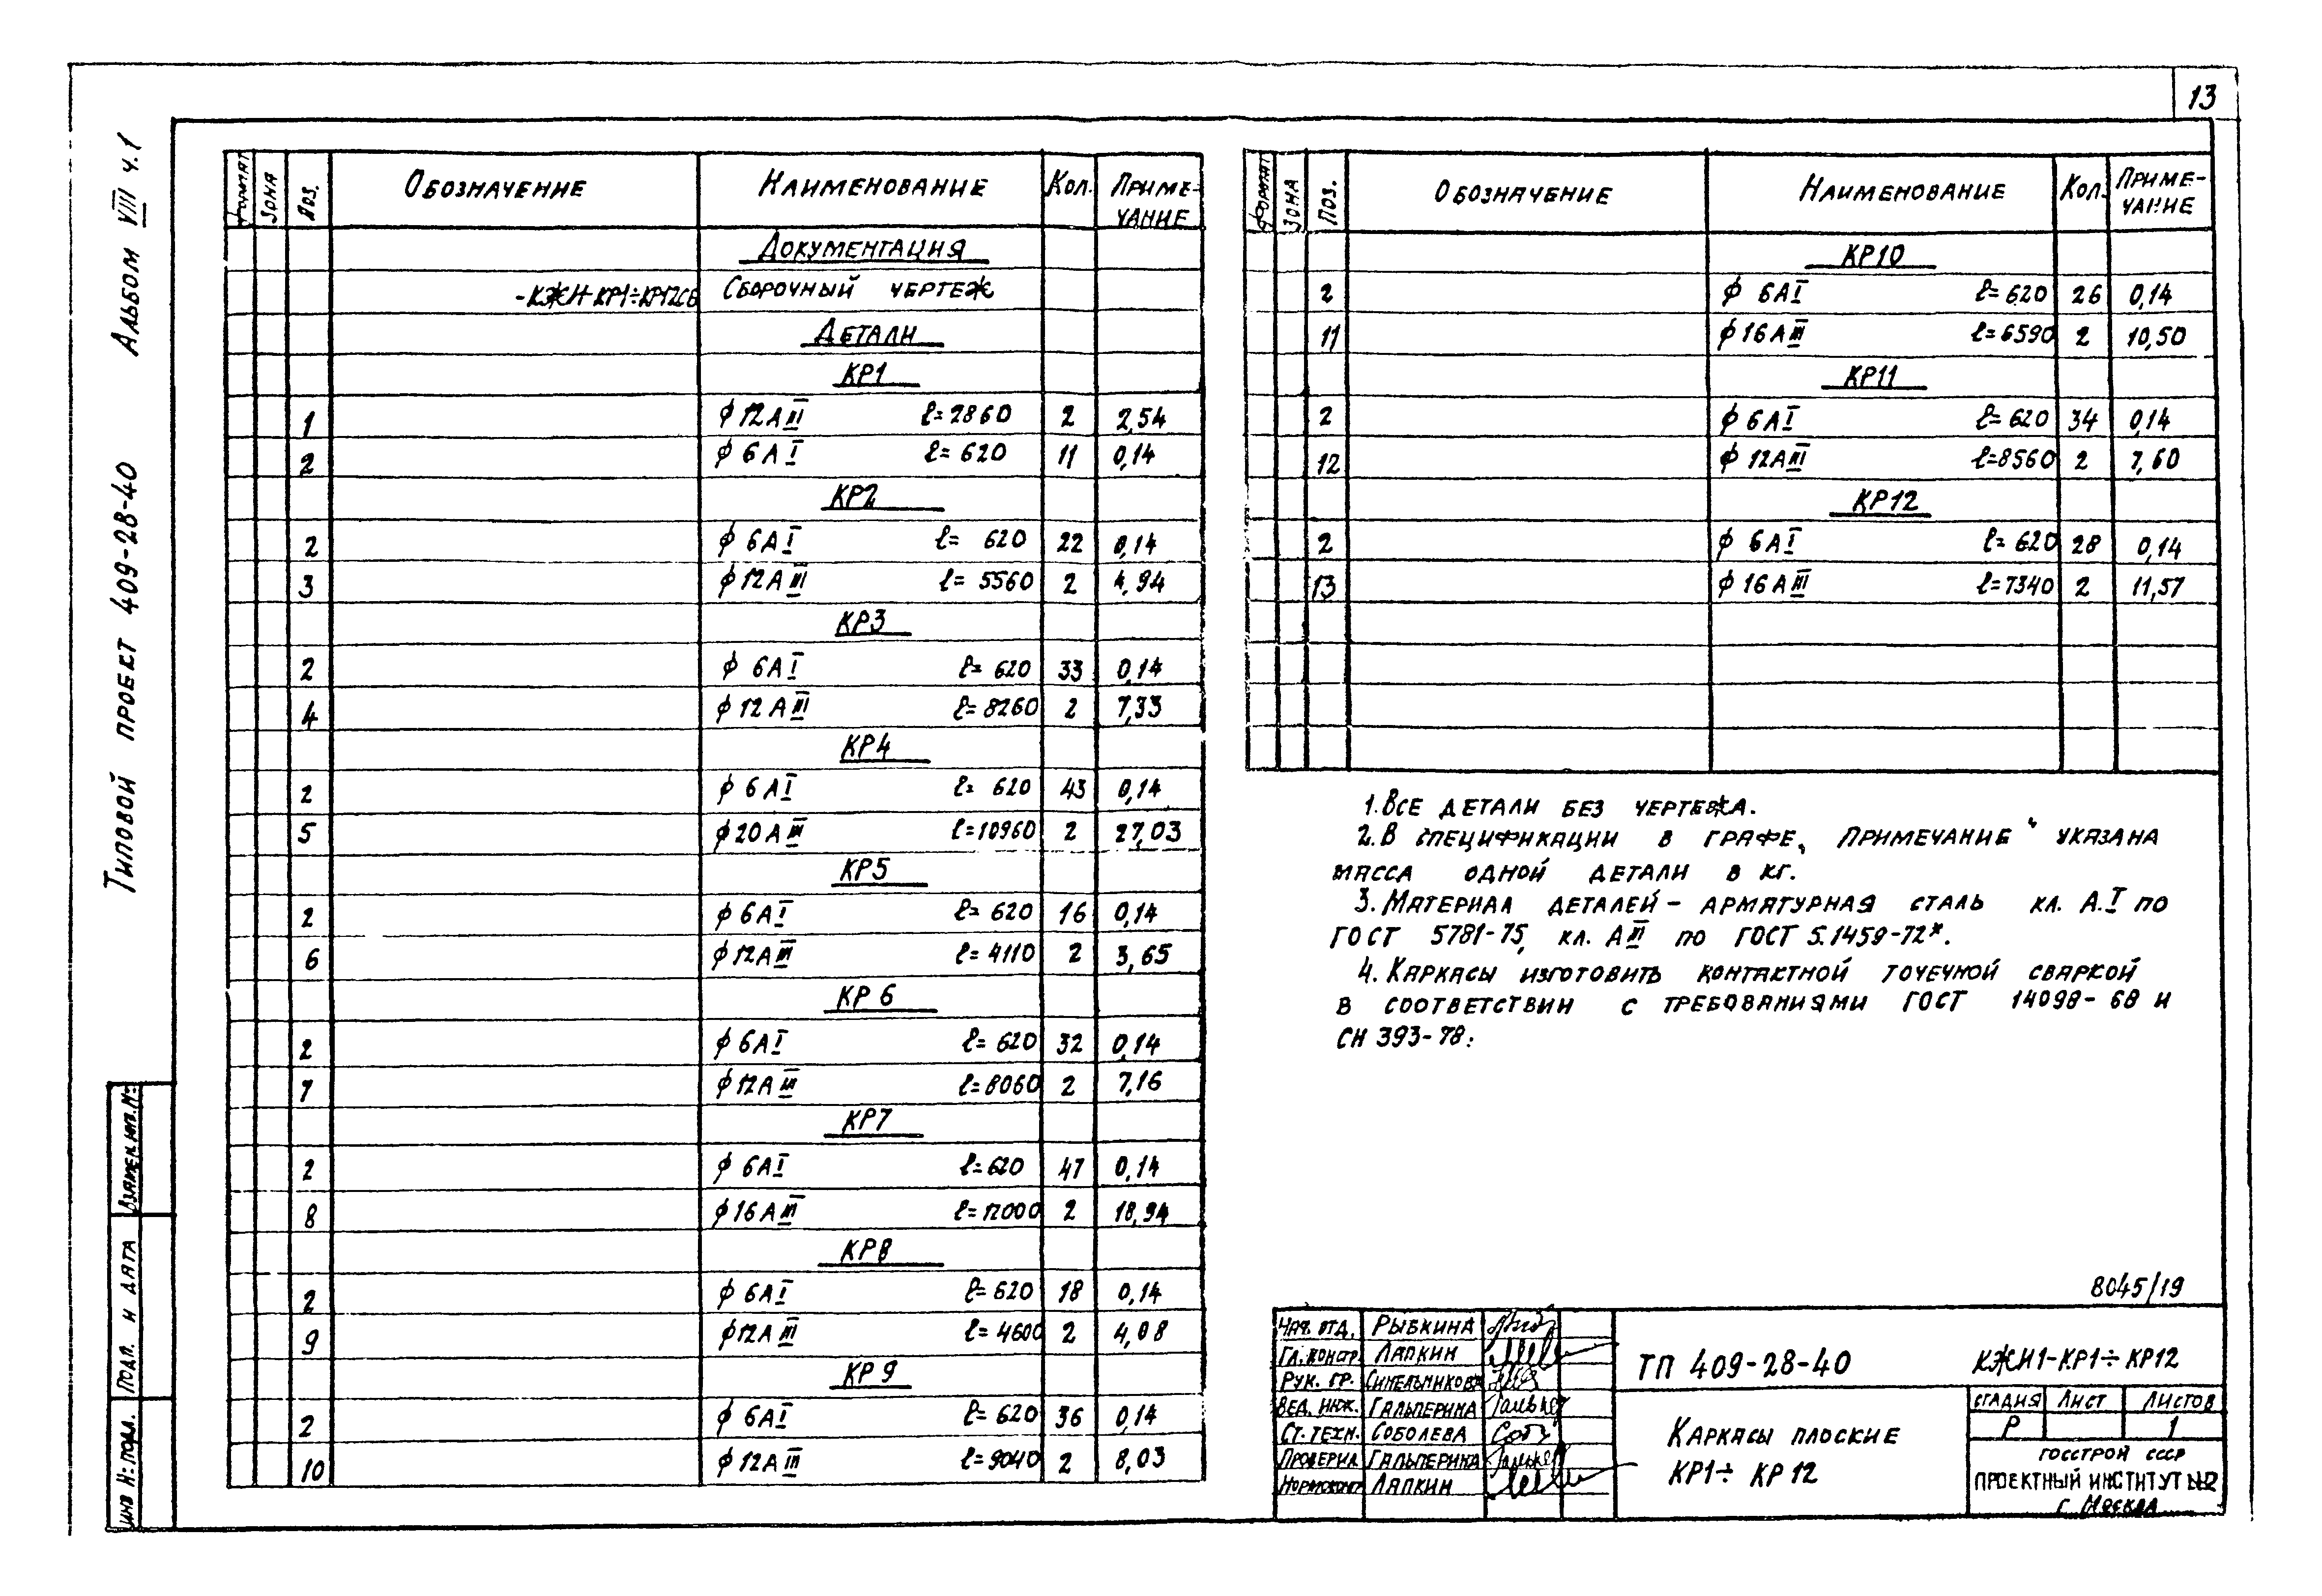 13
Типовой проект 409-28-40 Альбом VIII ч.1
Формат Зона Поз. Обозначение Наименование Кол. Примечание
Документация
-КЖИ-КР1÷КР12СБ Сборочный чертеж
Детали
КР1
1 ф12АIII ℓ=2860 2 2,54
2 ф6АI ℓ=620 11 0,14
КР2
2 ф6АI ℓ=620 22 0,14
3 ф12АIII ℓ=5560 2 4,94
КР3
2 ф6АI ℓ=620 33 0,14
4 ф12АIII ℓ=8260 2 7,33
КР4
2 ф6АI ℓ=620 43 0,14
5 ф20АIII ℓ=10960 2 27,03
КР5
2 ф6АI ℓ=620 16 0,14
6 ф12АIII ℓ=4110 2 3,65
КР6
2 ф6АI ℓ=620 32 0,14
7 ф12АIII ℓ=8060 2 7,16
КР7
2 ф6АI ℓ=620 47 0,14
8 ф16АIII ℓ=12000 2 18,94
КР8
2 ф6АI ℓ=620 18 0,14
9 ф12АIII ℓ=4600 2 4,08
КР9
2 ф6АI ℓ=620 36 0,14
10 ф12АIII ℓ=9040 2 8,03
Формат Зона Поз. Обозначение Наименование Кол. Примечание
КР10
2 ф6АI ℓ=620 26 0,14
11 ф16АIII ℓ=6590 2 10,50
КР11
2 ф6АI ℓ=620 34 0,14
12 ф12АIII ℓ=8560 2 7,60
КР12
2 ф6АI ℓ=620 28 0,14
13 ф16АIII ℓ=7340 2 11,57
1. Все детали без чертежа.
2. В спецификации в графе „Примечание“ указана
масса одной детали в кг.
3. Материал деталей - арматурная сталь кл. А.I по
ГОСТ 5781-75, кл. АIII по ГОСТ 5.1459-72*.
4. Каркасы изготовить контактной точечной сваркой
в соответствии с требованиями ГОСТ 14098-68 и
СН 393-78.
8045/19
Нач. отд. Рыбкина
Гл. констр. Ляпкин
Рук. гр. Синельникова
Вед. инж. Гальперина
Ст. техн. Соболева
Проверил Гальперина
Нормоконтр Ляпкин
ТП 409-28-40 КЖИ1-КР1÷КР12
Каркасы плоские
КР1÷КР12
Стадия Лист Листов
Р 1
Госстрой СССР
Проектный институт №2
г. Москва
Взамен инв.№
Подп. и дата
Инв №подл.